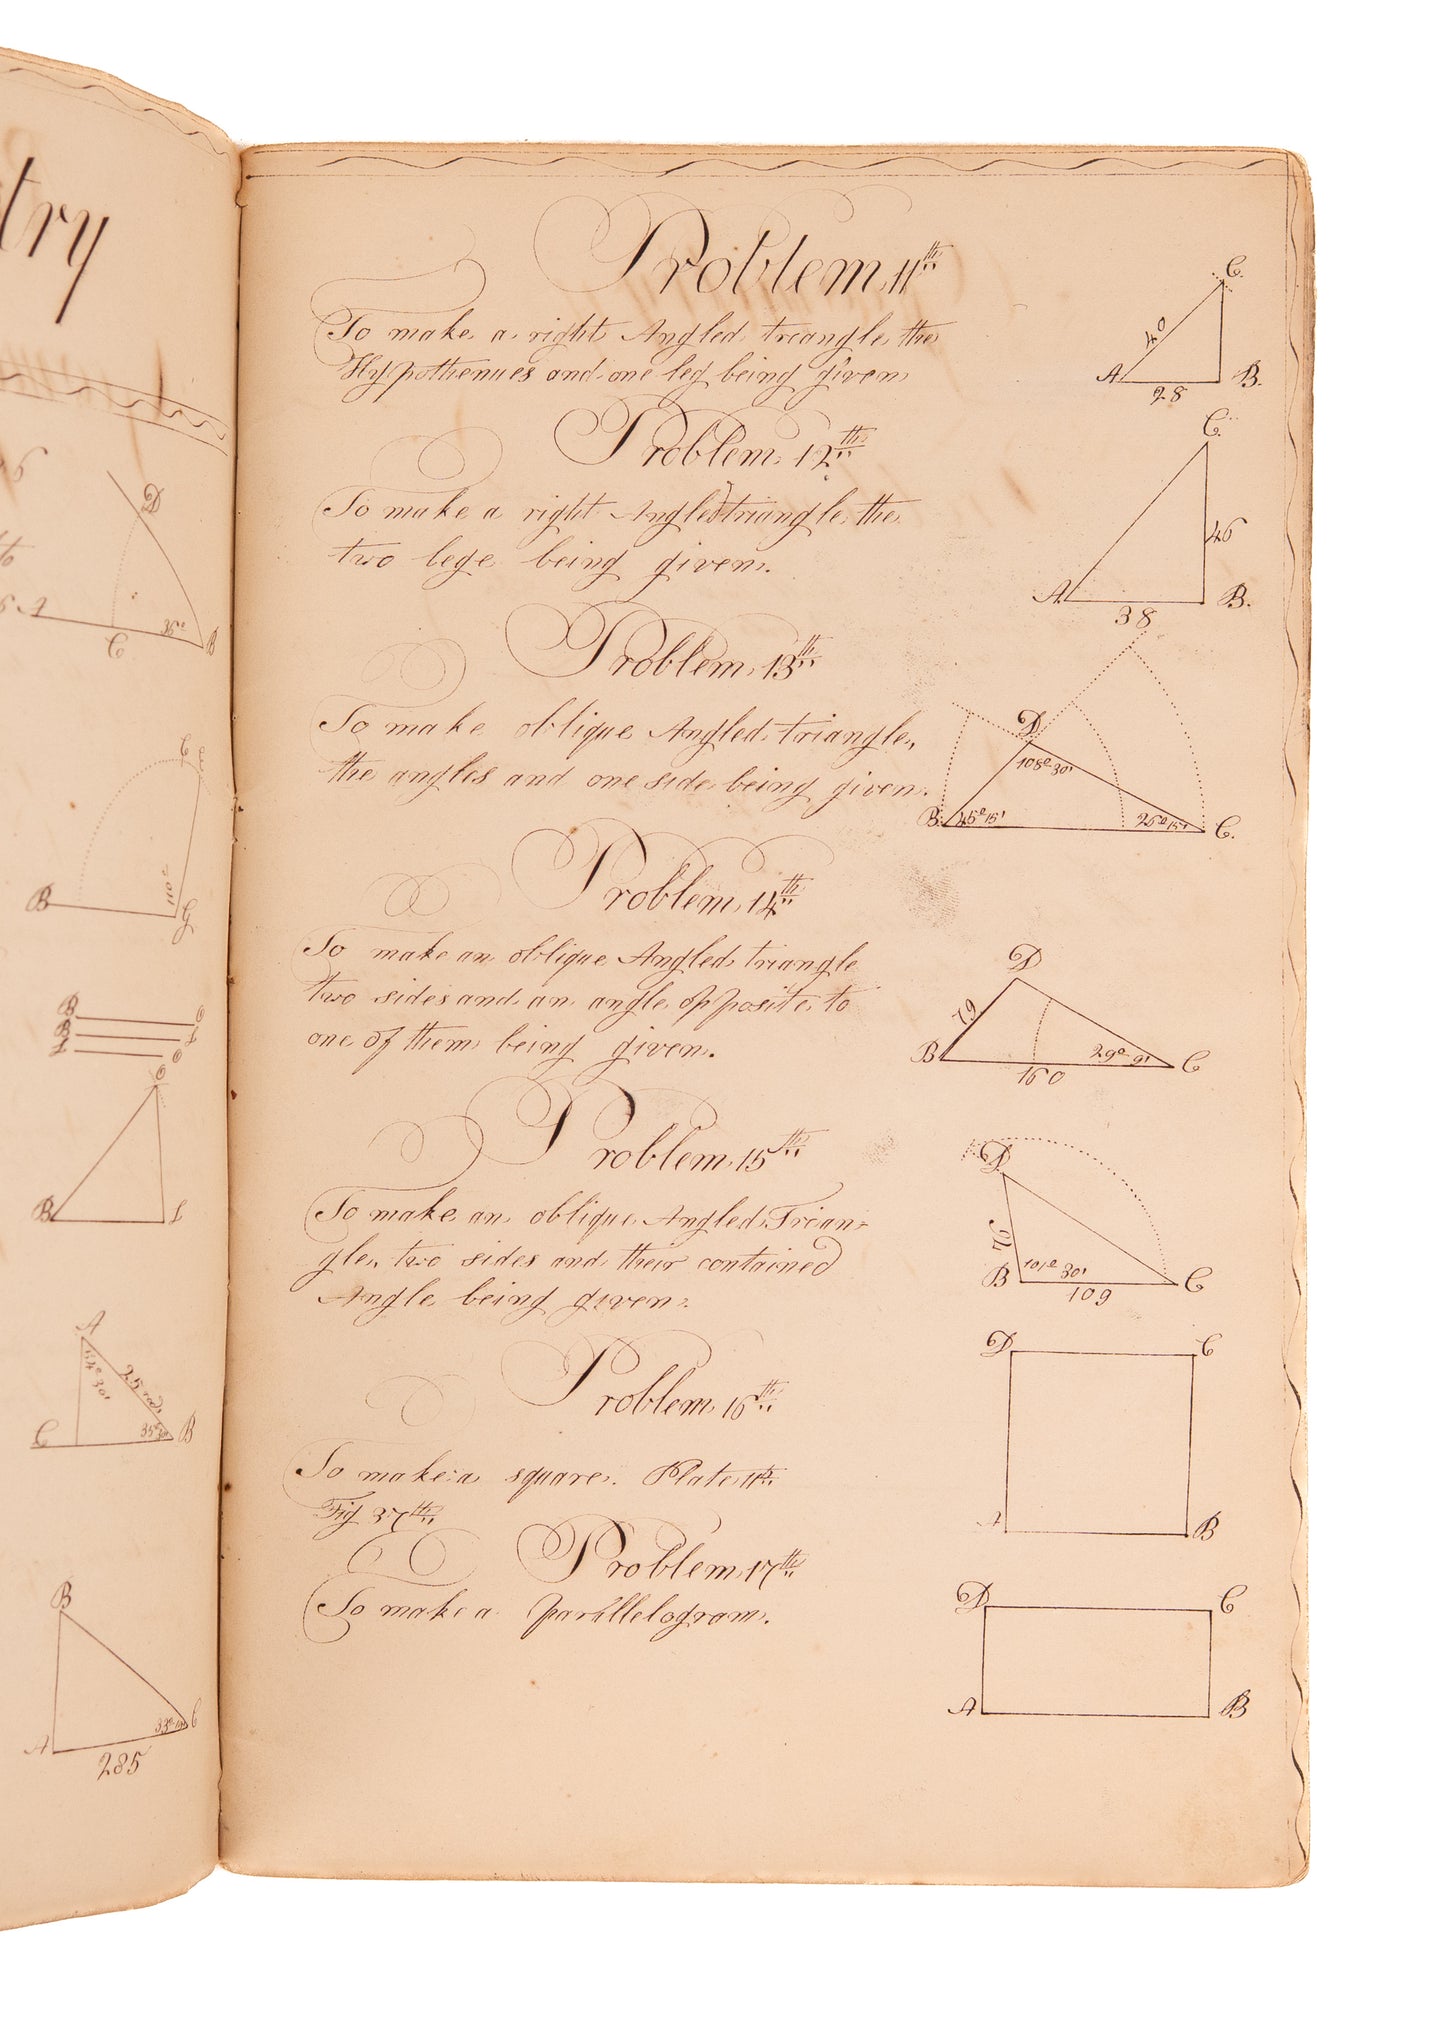 try
D
A
C
36°
B
C
B
110°
G
B
B
C
B
A
54° 30'
25 rods
C
B
B
A
C
285
Problem 11th
To make a right Angled treangle the
Hypothenues and one leg being given
C.
40
A
28
B.
Problem 12th
To make a right Angled triangle the
two lege being given.
C.
46
A
38
B.
Problem 13th
To make oblique Angled triangle,
the angles and one side being given.
D
108° 30'
B.
45° 15'
26° 15'
C.
Problem 14th
To make an oblique Angled triangle
two sides and an angle opposite to
one of them being given.
D
79
B
160
29° 9'
C
Problem 15th
To make an oblique Angled Trian=
gle, two sides and their contained
Angle being given.
D
76
B
101° 30'
109
C
Problem 16th
To make a square. Plate 11th
Fig 37th
D
C
A
B
Problem 17th
To make a parallelogram.
D
C
A
B